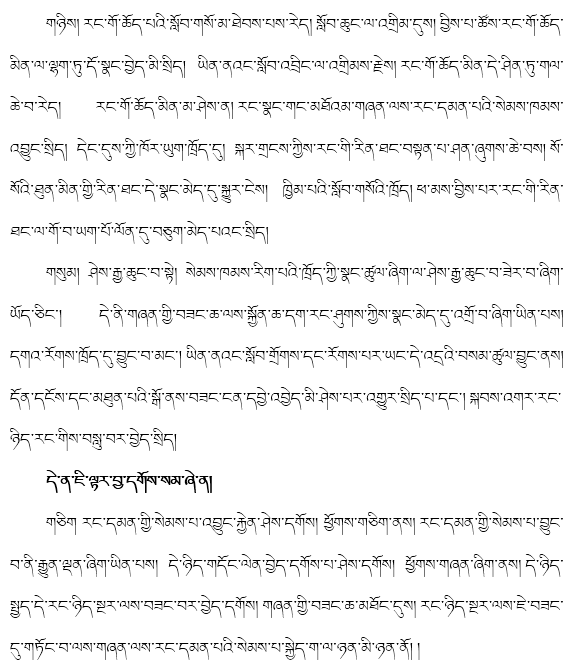 གཉིས། རང་གོ་ཆོད་པའི་སློབ་གསོ་མ་ཐེབས་པས་རེད། སློབ་ཆུང་ལ་འགྲིམ་དུས། བྱིས་པ་ཚོས་རང་གོ་ཆོད་
མིན་ལ་ལྷག་ཏུ་དོ་སྣང་བྱེད་མི་སྲིད། ཡིན་ནའང་སློབ་འབྲིང་ལ་འགྲིམས་རྗེས། རང་གོ་ཆོད་མིན་དེ་ཤིན་ཏུ་གལ་
ཆེ་བ་རེད། རང་གོ་ཆོད་མིན་མ་ཤེས་ན། རང་སྣང་གང་མཐོའམ་གཞན་ལས་རང་དམན་པའི་སེམས་ཁམས་
འབྱུང་སྲིད། དེང་དུས་ཀྱི་ཁོར་ཡུག་ཁྲོད་དུ། སྐར་གྲངས་ཀྱིས་རང་གི་རིན་ཐང་བསྟན་པ་ཤན་ཞུགས་ཆེ་བས། སོ་
སོའི་ཐུན་མིན་གྱི་རིན་ཐང་དེ་སྣང་མེད་དུ་སྐྱུར་ངེས། ཁྱིམ་པའི་སློབ་གསོའི་ཁྲོད། ཕ་མས་བྱིས་པར་རང་གི་རིན་
ཐང་ལ་གོ་བ་ཡག་པོ་ལོན་དུ་བཅུག་མེད་པའང་སྲིད།
གསུམ། ཤེས་རྒྱ་ཆུང་བ་སྟེ། སེམས་ཁམས་རིག་པའི་ཁྲོད་ཀྱི་སྣང་ཚུལ་ཞིག་ལ་ཤེས་རྒྱ་ཆུང་བ་ཟེར་བ་ཞིག་
ཡོད་ཅིང་། དེ་ནི་གཞན་གྱི་བཟང་ཆ་ལས་སྐྱོན་ཆ་དག་རང་ཤུགས་ཀྱིས་སྣང་མེད་དུ་འགྲོ་བ་ཞིག་ཡིན་པས།
དགའ་རོགས་ཁྲོད་དུ་བྱུང་བ་མང་། ཡིན་ནའང་སློབ་གྲོགས་དང་རོགས་པར་ཡང་དེ་འདྲའི་བསམ་ཚུལ་བྱུང་ནས།
དོན་དངོས་དང་མཐུན་པའི་སྒོ་ནས་བཟང་ངན་དབྱེ་འབྱེད་མི་ཤེས་པར་འགྱུར་སྲིད་པ་དང་། སྐབས་འགར་རང་
ཉིད་རང་གིས་བསླུ་བར་བྱེད་སྲིད།
དེ་ན་ཇི་ལྟར་བྱ་དགོས་སམ་ཞེ་ན།
གཅིག རང་དམན་གྱི་སེམས་པ་འབྱུང་རྐྱེན་ཤེས་དགོས། ཕྱོགས་གཅིག་ནས། རང་དམན་གྱི་སེམས་པ་བྱུང་
བ་ནི་རྒྱུན་ལྡན་ཞིག་ཡིན་པས། དེ་ཉིད་གདོང་ལེན་བྱེད་དགོས་པ་ཤེས་དགོས། ཕྱོགས་གཞན་ཞིག་ནས། དེ་ཉིད་
སྤྱད་དེ་རང་ཉིད་སྔར་ལས་བཟང་བར་བྱེད་དགོས། གཞན་གྱི་བཟང་ཆ་མཐོང་དུས། རང་ཉིད་སྔར་ལས་ཇེ་བཟང་
དུ་གཏོང་བ་ལས་གཞན་ལས་རང་དམན་པའི་སེམས་པ་སྐྱེད་ག་ལ་ཉན་མི་ཉན་ནོ། །